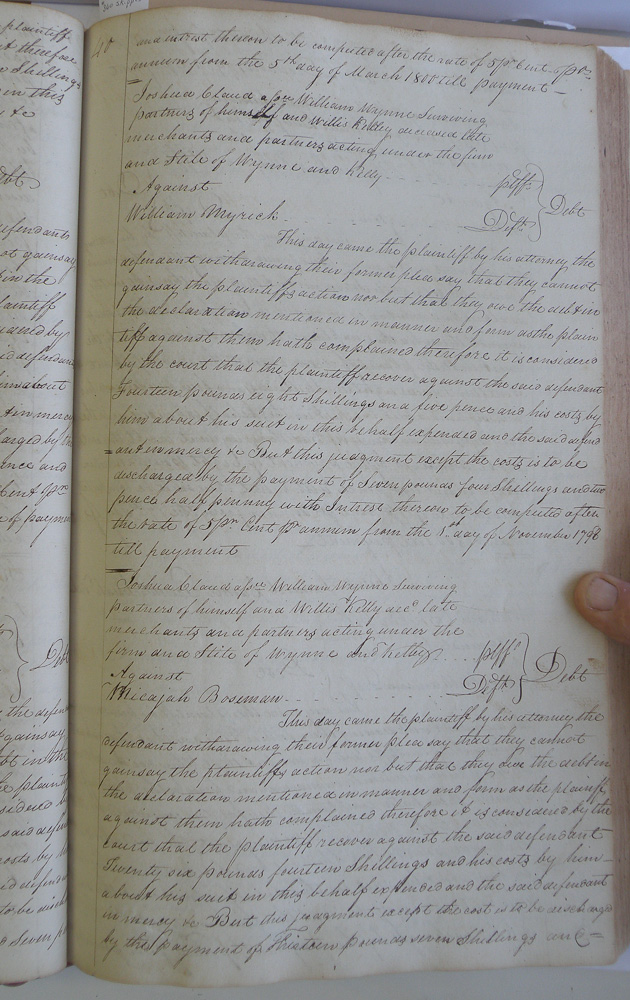 40
and intrest thereon to be computed after the rate of 5 pr Cent pr
annum from the 5th day of March 1800 till payment
Joshua Claud assee William Wynne Surviving
partners of himself and Willis Kelley deceased late
merchants and partners acting under the firm
and Stile of Wynne and Kelly pltff
Against Debt
William Myrick Deft
This day came the plaintiff by his attorney the
defendant withdrawing their former plea say that they cannot
gainsay the plaintiffs action nor but that they owe the debt in
the declaration mentioned in manner and form as the plain
tiff against them hath complained therefore it is considered
by the court that the plaintiff recover against the said defendant
Fourteen pounds eight Shillings and five pence and his costs by
him about his suit in this behalf expended and the said defend
=ant in mercy &c But this judgment except the costs is to be
discharged by the payment of Seven pounds four Shillings and two
pence half penny with Intrest thereon to be computed after
the rate of 5 pr Cent pr annum from the 1st day of November 1798
till payment
Joshua Claud assee William Wynne Surviving
partners of himself and Willis Kelley decd late
merchants and partners acting under the
firm and Stile of Wynne and Kelley pltff
Against Debt
Micajah Boseman Deft
This day came the plaintiff by his attorney the
defendant withdrawing their former plea say that they cannot
gainsay the plaintiffs action nor but that they owe the debt in
the declaration mentioned in manner and form as the plaintiff
against them hath complained therefore it is considered by the
court that the plaintiff recover against the said defendant
Twenty six pounds fourteen Shillings and his costs by him
about his suit in this behalf expended and the said defendant
in mercy &c But this judgment except the cost is to be discharge
by the payment of Thirteen pounds seven Shillings and =